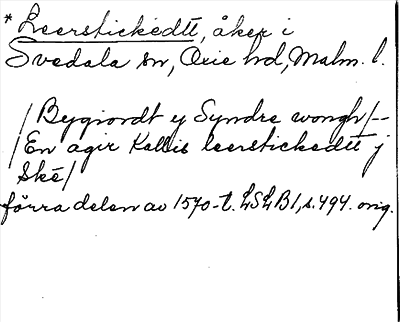 *Leerstickedtt, åker i
Svedala sn, Oxie hd, Malm. l.
/Bygiordt y Syndre wongh/--
/En agir Kallis leerstickedtt j
Ske/
förra delen av 1570-t. LSLB1, s. 494. orig.